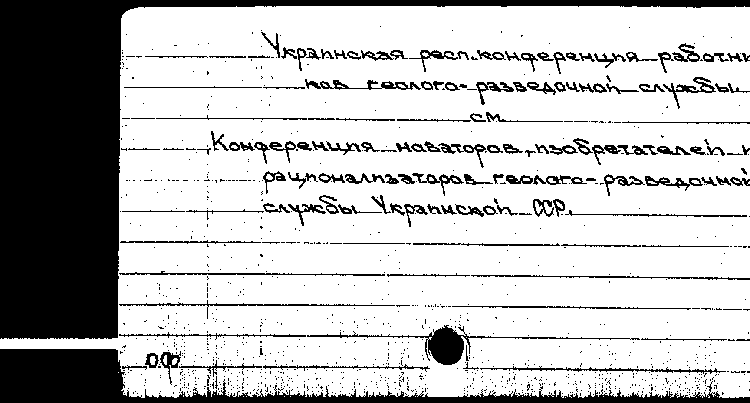 Украинская респ. конференция работни
ков геолого-разведочной службы.
см.
Конференция новаторов, изобретателей и
рационализаторов геолого-разведочной
службы Украинской ССР.